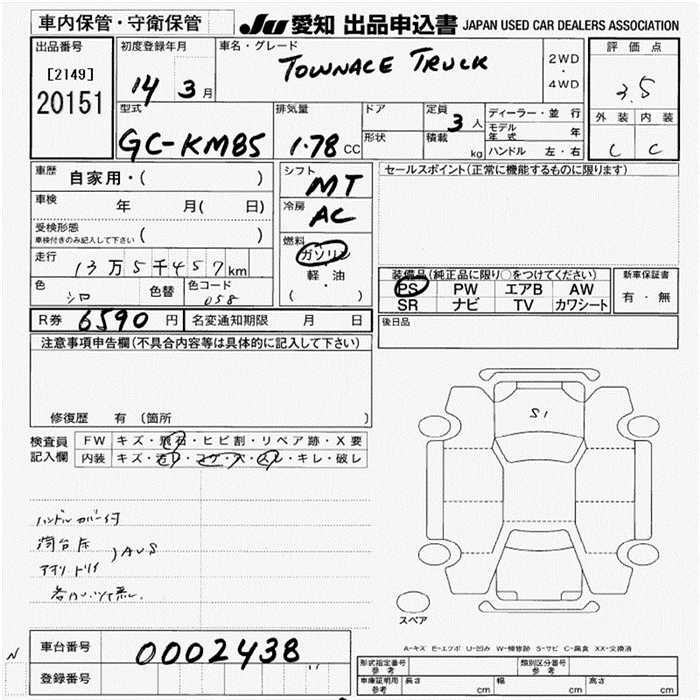 車内保管・守衛保管 JU 愛知 出品申込書 JAPAN USED CAR DEALERS ASSOCIATION
出品番号 初度登録年月 車名・グレード 評価点
[2149] 14 3月 TOWNACE TRUCK 2WD・4WD 3.5
20151 型式 排気量 ドア 定員 ディーラー・並行 外装 内装
GC-KM85 1.78 CC 形状 3人 積載 kg モデル年式 年 C C
ハンドル 左・右
車歴 自家用・( ) シフト MT セールスポイント(正常に機能するものに限ります)
車検 年 月( 日) 冷房 AC
受検形態 車検付きのみ記入して下さい ( ) 燃料 ガソリン
走行 13万5千457km 軽油 装備品(純正品に限り○をつけてください) 新車保証書
色 シロ 色替 色コード 058 ( ) PS PW エアB AW 有・無
SR ナビ TV カワシート
R券 6590円 名変通知期限 月 日 後日品
注意事項申告欄(不具合内容等は具体的に記入して下さい)
修復歴 有 (箇所 )
検査員 FW キズ・飛石・ヒビ割・リペア跡・X要
記入欄 内装 キズ・汚レ・コゲ・穴・スレ・キレ・破レ
S1
ハンドルカバー付
荷台
スペア
A-キズ E-エクボ U-凹み W-補修跡 S-サビ C-腐食 XX-交換済
N 車台番号 0002438
登録番号
形式指定番号 参考 類別区分番号 参考
車庫証明用 参考 長さ cm 幅 cm 高さ cm